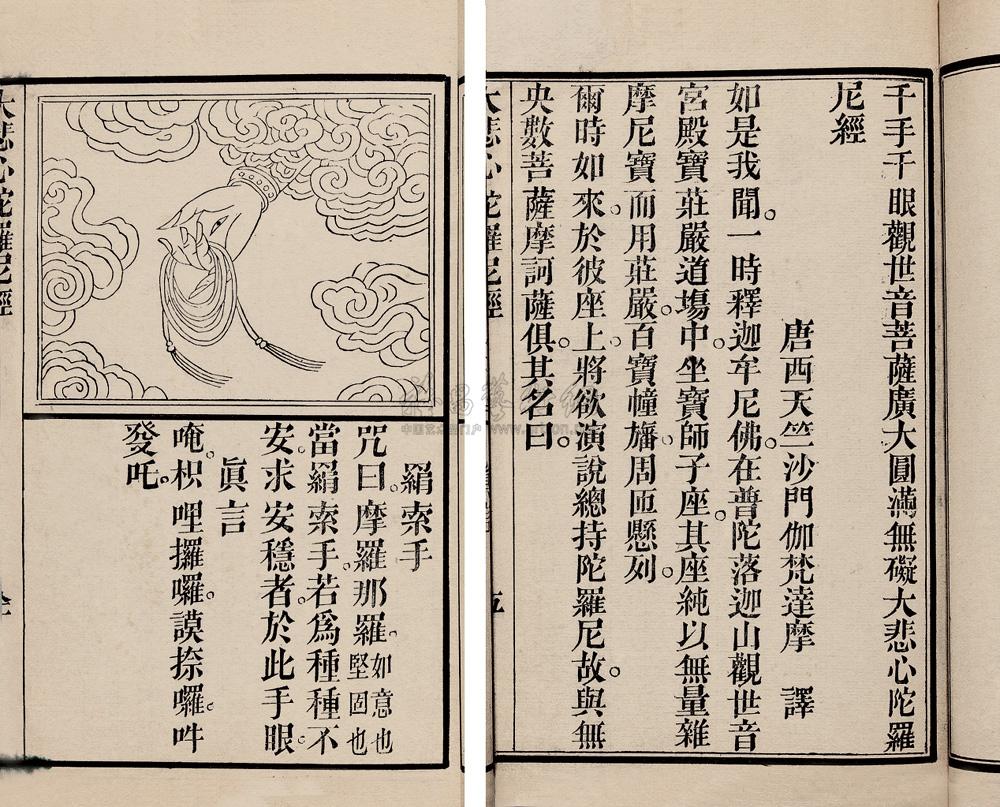 千手千眼觀世音菩薩廣大圓滿無礙大悲心陀羅
尼經
唐西天竺沙門伽梵達摩　譯
如是我聞。一時釋迦牟尼佛。在普陀落迦山觀世音
宮殿寶莊嚴道場中。坐寶師子座。其座純以無量雜
摩尼寶。而用莊嚴。百寶幢旛。周匝懸列。
爾時如來。於彼座上。將欲演說總持陀羅尼故。與無
央數菩薩摩訶薩俱。其名曰。
大悲心陀羅尼經
五
大悲心陀羅尼經
羂索手
咒曰。摩羅那羅。如意也堅固也
當羂索手。若為種種不
安。求安穩者。於此手眼。
眞言
唵。枳哩攞囉。謨捺囉。吽
癹吒。